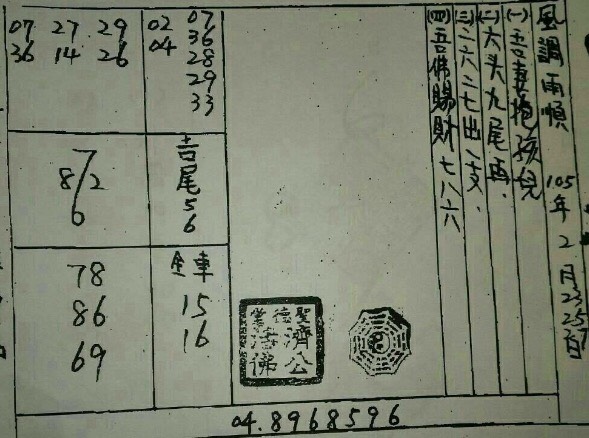 風調雨順 105年2月23 25 27日
(一)吾妻抱孩兒
(二)六头九尾再.
(三)二六二七出一支.
(四)吾佛賜財七八六
02 07
04 36
28
29
33
07 27 29
36 14 26
吉尾56
7
8/2
6
全車
15
16
78
86
69
聖德堂
濟公活佛
04.8968596